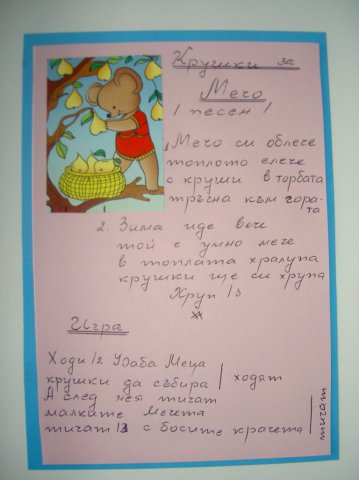 Крушки за
Мечо
/ песен /
Мечо си облече
топлото елече
с круши в торбата
тръгна към гора-
та
2. Зима иде вече
той е умно мече
в топлата хралупа
крушки ще си хрупа
Хруп /3
Игра
Ходи /2 Баба Меца
крушки да събира | ходят
А след нея тичат
малките Мечета
тичат /3 с босите крачета | тичат